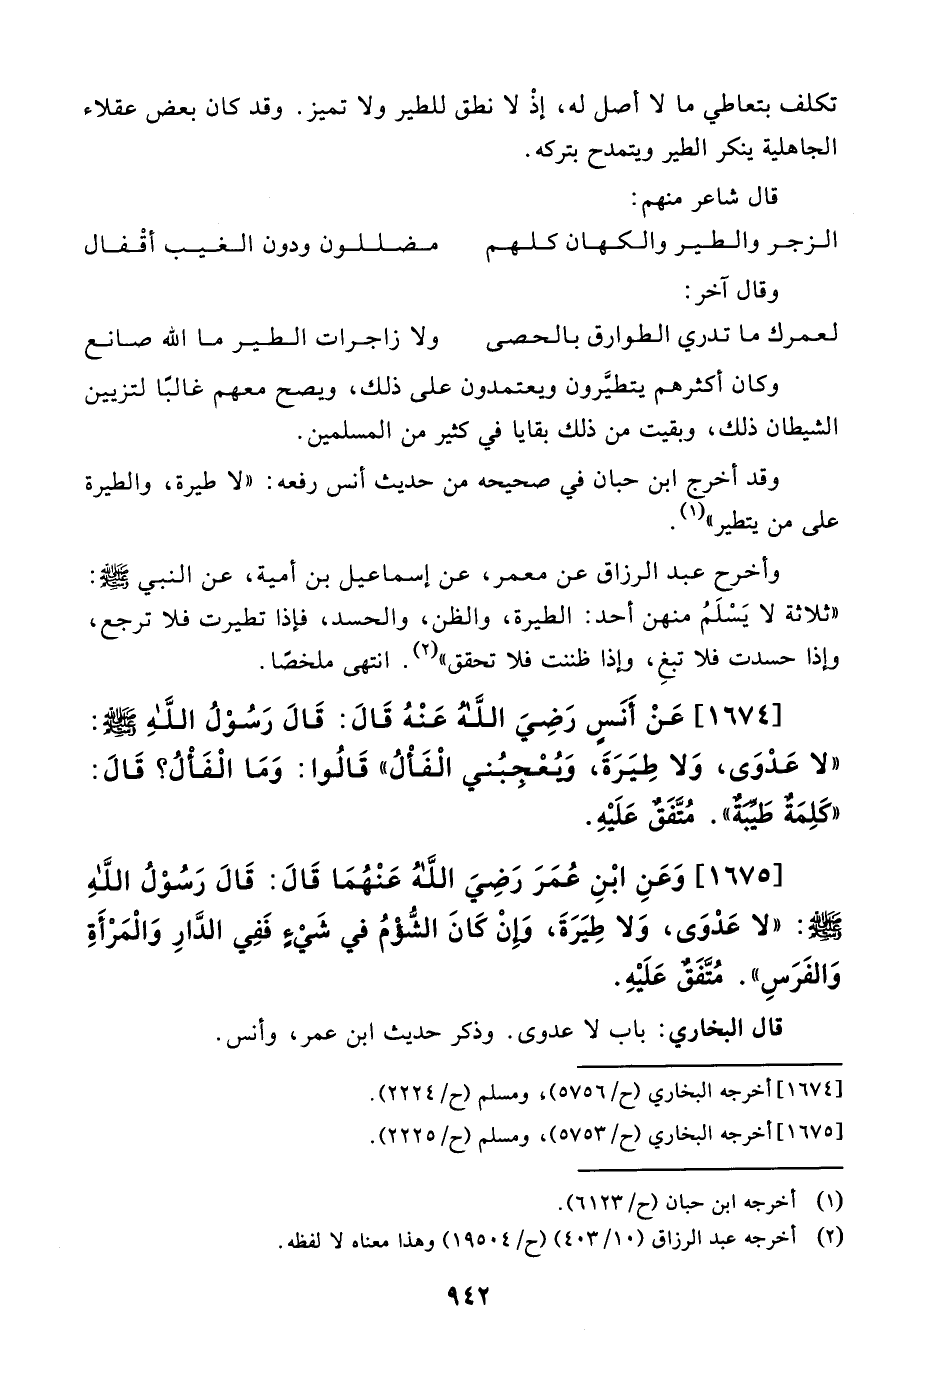 تكلف بتعاطي ما لا أصل له، إذْ لا نطق للطير ولا تميز. وقد كان بعض عقلاء
الجاهلية ينكر الطير ويتمدح بتركه.
قال شاعر منهم:
الزجر والطير والكهان كلهم مضللون ودون الغيب أقْفال
وقال آخر:
لعمرك ما تدري الطوارق بالحصى ولا زاجرات الطير ما الله صانع
وكان أكثرهم يتطيَّرون ويعتمدون على ذلك، ويصح معهم غالبًا لتزيين
الشيطان ذلك، وبقيت من ذلك بقايا في كثير من المسلمين.
وقد أخرج ابن حبان في صحيحه من حديث أنس رفعه: «لا طيرة، والطيرة
على من يتطير»(١).
وأخرح عبد الرزاق عن معمر، عن إسماعيل بن أمية، عن النبي ﷺ:
«ثلاثة لا يَسْلَمُ منهن أحد: الطيرة، والظن، والحسد، فإذا تطيرت فلا ترجع،
وإذا حسدت فلا تبغِ، وإذا ظننت فلا تحقق»(٢). انتهى ملخصًا.
[١٦٧٤] عَنْ أَنَسٍ رَضِيَ اللَّهُ عَنْهُ قَالَ: قَالَ رَسُوْلُ اللَّهِ ﷺ:
«لا عَدْوَى، وَلا طِيَرَةَ، وَيُعْجِبُني الْفَأْلُ» قَالُوا: وَمَا الْفَأْلُ؟ قَالَ:
«كَلِمَةٌ طَيِّبَةٌ». مُتَّفَقٌ عَلَيْهِ.
[١٦٧٥] وَعَنِ ابْنِ عُمَرَ رَضِيَ اللَّهُ عَنْهُمَا قَالَ: قَالَ رَسُوْلُ اللَّهِ
ﷺ: «لا عَدْوَى، وَلا طِيَرَةَ، وَإِنْ كَانَ الشُّؤْمُ في شَيْءٍ فَفِي الدَّارِ وَالْمَرْأَةِ
وَالفَرَسِ». مُتَّفَقٌ عَلَيْهِ.
قال البخاري: باب لا عدوى. وذكر حديث ابن عمر، وأنس.
[١٦٧٤] أخرجه البخاري (ح/٥٧٥٦)، ومسلم (ح/٢٢٢٤).
[١٦٧٥] أخرجه البخاري (ح/٥٧٥٣)، ومسلم (ح/٢٢٢٥).
(١) أخرجه ابن حبان (ح/٦١٢٣).
(٢) أخرجه عبد الرزاق (٤٠٣/١٠) (ح/١٩٥٠٤) وهذا معناه لا لفظه.
٩٤٢